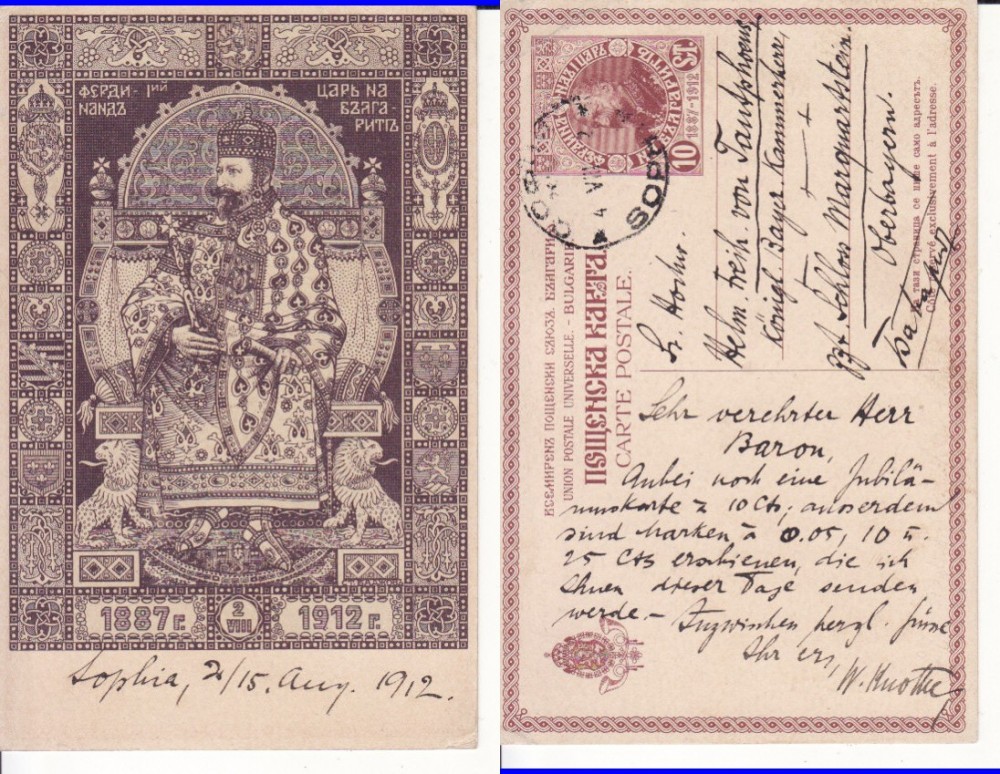 ФЕРДИ-
НАНДЪ
Iий
ЦАРЬ НА
БЪЛГА-
РИТѢ
1887 г.
2
VIII
1912 г.
Sophia, 2/15. Aug. 1912.
10
СТ.
1887-1912
4
VIII
ВСЕМИРЕНЪ ПОЩЕНСКИ СЪЮЗЪ БЪЛГАРИЯ
UNION POSTALE UNIVERSELLE. - BULGARIE
ПОЩЕНСКА КАРТА.
CARTE POSTALE.
На тази страница се пише само адресътъ.
Côté réservé exclusivement à l'adresse.
Sr. Hochw.
Helm. Freih. von Tautphoeus,
Königl. Bayer. Kammerherr,
Schloss Marquartstein.
Oberbayern.
Sehr verehrter Herr
Baron,
Anbei noch eine Jubilä-
umskarte z 10 Cts; ausserdem
sind Marken à 0.05, 10 u.
25 Cts erschienen, die ich
Ihnen dieser Tage senden
werde. - Inzwischen herzl. Grüsse
Ihr erg.
W. Knothe